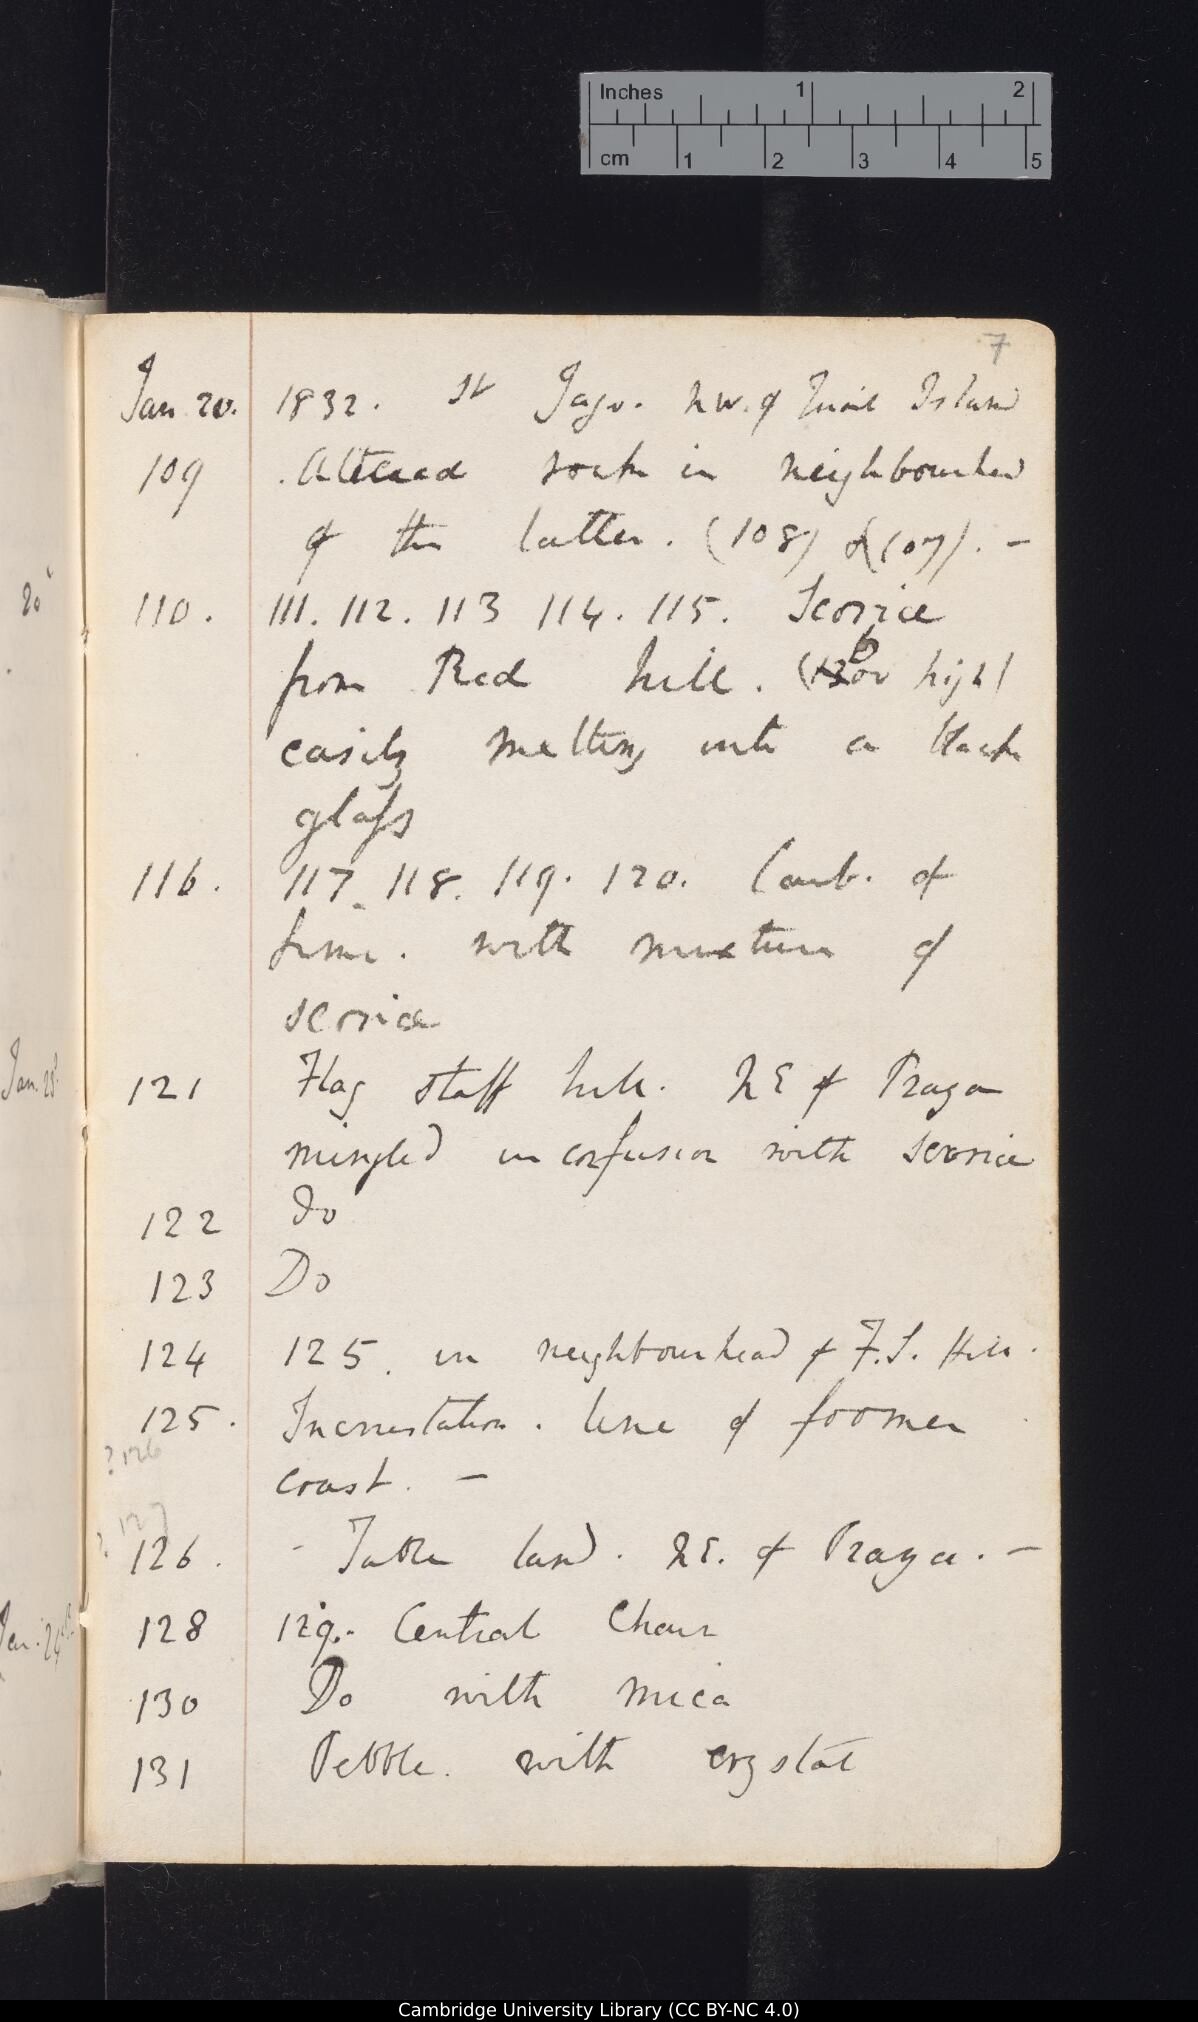 Inches 1 2
cm 1 2 3 4 5
7
Jan 20. 1832. St Jago. NW. of Quail Island
109 . Altered rock in neighbourhood
of the latter. (108) &(107). —
110. 111. 112. 113 114. 115. Scoriæ
from Red hill. (1300 high)
6
easily melting into a black
glass
116. 117. 118. 119. 120. Carb. of
lime. with mixture of
scoriæ
121 Flag staff hill. NE of Praya
mingled in confusion with scoriæ
122 Do
123 Do
124 125. in neighbourhead of F.S. Hill.
125. Incrustation. line of foomer
?126
coast. —
? 127
126. - Table land. NE. of Praya. —
128 129.- Central Chain
130 Do with mica
131 Pebble. with crystal
20
Jan. 23d
Jan. 24th
Cambridge University Library (CC BY-NC 4.0)